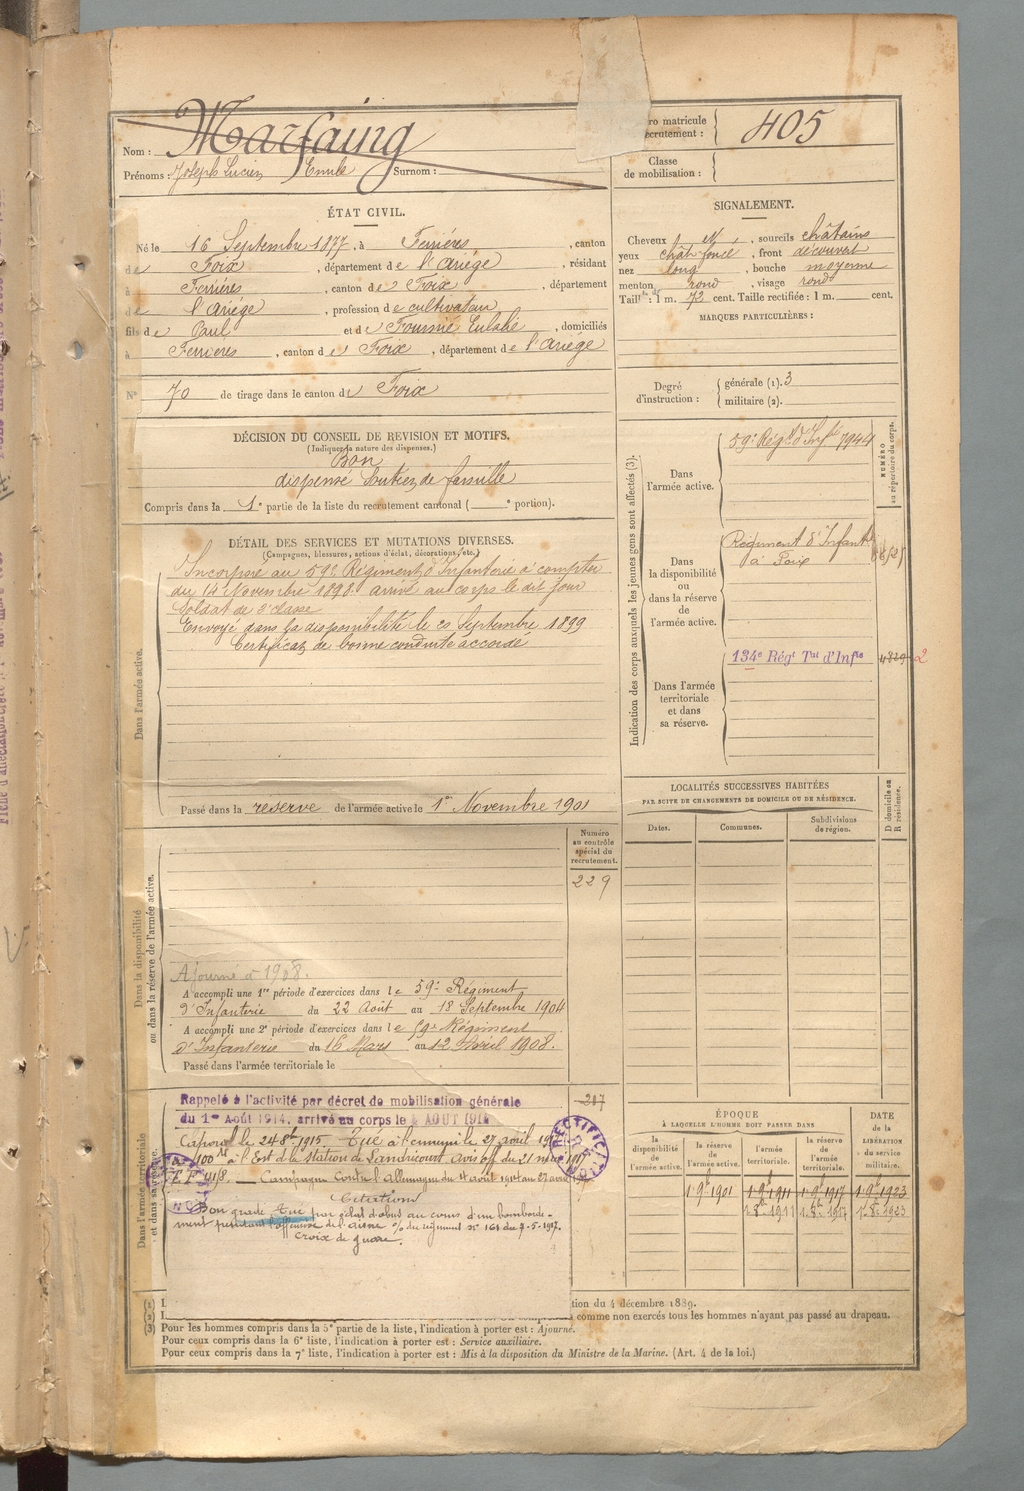 Nom : Marfaing
Prénoms : Joseph Lucien Emile Surnom :
Numéro matricule du recrutement : 405
Classe de mobilisation :
ÉTAT CIVIL.
Né le 16 Septembre 1877, à Ferrières, canton
de Foix, département de l'Ariège, résidant
à Ferrières, canton de Foix, département
de l'Ariège, profession de cultivateur
fils de Paul et de Fournié Eulalie, domiciliés
à Ferrières, canton de Foix, département de l'Ariège
N° 70 de tirage dans le canton de Foix
SIGNALEMENT.
Cheveux, sourcils châtains
yeux chât. foncé, front découvert
nez long, bouche moyenne
menton rond, visage rond
Taille : 1 m. 72 cent. Taille rectifiée : 1 m. cent.
MARQUES PARTICULIÈRES :
Degré d'instruction : générale (1). 3
militaire (2).
DÉCISION DU CONSEIL DE REVISION ET MOTIFS.
(Indiquer la nature des dispenses.)
Bon
dispensé Soutien de famille
Compris dans la 1e partie de la liste du recrutement cantonal ( e portion).
DÉTAIL DES SERVICES ET MUTATIONS DIVERSES.
(Campagnes, blessures, actions d'éclat, décorations, etc.)
Dans l'armée active.
Incorporé au 59e Régiment d'Infanterie à compter
du 14 Novembre 1898. arrivé au corps le dit jour
Soldat de 2e classe
Envoyé dans la disponibilité le 20 Septembre 1899
Certificat de bonne conduite accordé
Passé dans la réserve de l'armée active le 1er Novembre 1901
Indication des corps auxquels les jeunes gens sont affectés (3).
NUMÉRO au répertoire du corps.
Dans l'armée active.
59e Régt d'Infie 7944
Dans la disponibilité ou dans la réserve de l'armée active.
Régiment d'Infanterie
à Foix
Dans l'armée territoriale et dans sa réserve.
134e Régt Tal d'Infie 4829 2
LOCALITÉS SUCCESSIVES HABITÉES
PAR SUITE DE CHANGEMENTS DE DOMICILE OU DE RÉSIDENCE.
Dates. Communes. Subdivisions de région. D domicile ou R résidence.
Dans la disponibilité ou dans la réserve de l'armée active.
Numéro au contrôle spécial du recrutement.
229
Ajourné à 1908.
A accompli une 1re période d'exercices dans le 59e Régiment
d'Infanterie du 22 Août au 18 Septembre 1904
A accompli une 2e période d'exercices dans le 59e Régiment
d'Infanterie du 16 Mars au 12 Avril 1908.
Passé dans l'armée territoriale le
Dans l'armée territoriale et dans sa réserve.
Rappelé à l'activité par décret de mobilisation générale
du 1er Août 1914, arrivé au corps le 4 AOUT 1914
Caporal le 24 8bre 1915. Tué à l'ennemi le 27 avril
100 m à l'Est de la station de Sandricourt avis off. du 21 mai 1917
Campagne Contre l'Allemagne du 4 août 1914 au 27 avril
RECTIFICATION
Citation
Bon gradé. Tué par éclat d'obus au cours d'un bombarde-
ment pendant l'offensive de l'aisne o/ du régiment n° 161 du 7-5-1917.
Croix de guerre.
ÉPOQUE
À LAQUELLE L'HOMME DOIT PASSER DANS
la disponibilité de l'armée active. la réserve de l'armée active. l'armée territoriale. la réserve de l'armée territoriale.
DATE de la LIBÉRATION du service militaire.
1.9bre 1901 1.9bre 1911 1.9bre 1917 1.9bre 1923
1.8bre 1911 1.8bre 1917 1.8bre 1923
(1)
(2)
tion du 4 décembre 1889.
comme non exercés tous les hommes n'ayant pas passé au drapeau.
(3) Pour les hommes compris dans la 5e partie de la liste, l'indication à porter est : Ajourné.
Pour ceux compris dans la 6e liste, l'indication à porter est : Service auxiliaire.
Pour ceux compris dans la 7e liste, l'indication à porter est : Mis à la disposition du Ministre de la Marine. (Art. 4 de la loi.)